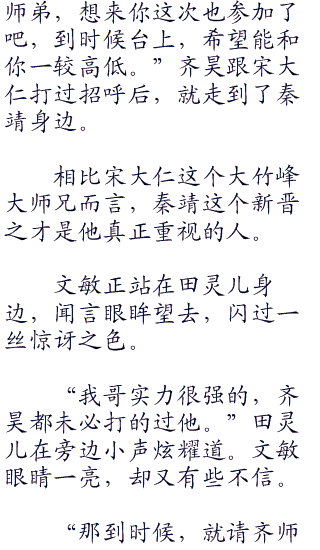 师弟，想来你这次也参加了
吧，到时候台上，希望能和
你一较高低。”齐昊跟宋大
仁打过招呼后，就走到了秦
靖身边。
相比宋大仁这个大竹峰
大师兄而言，秦靖这个新晋
之才是他真正重视的人。
文敏正站在田灵儿身
边，闻言眼眸望去，闪过一
丝惊讶之色。
“我哥实力很强的，齐
昊都未必打的过他。”田灵
儿在旁边小声炫耀道。文敏
眼睛一亮，却又有些不信。
“那到时候，就请齐师